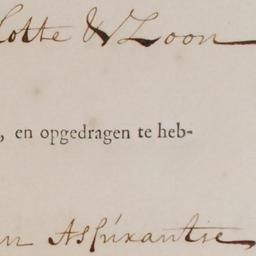 lotte & Zoon
, en opgedragen te heb-
en Assúrantie,